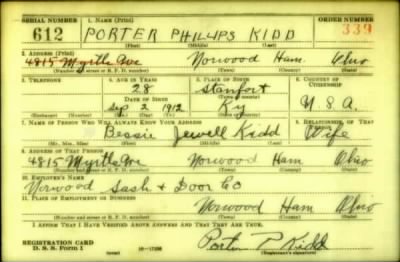 SERIAL NUMBER 1. NAME (Print) ORDER NUMBER
612 PORTER PHILLIPS KIDD 339
(First) (Middle) (Last)
2. ADDRESS (Print)
4815 Myrtle Ave Norwood Ham. Ohio
(Number and street or R. F. D. number) (Town) (County) (State)
3. TELEPHONE 4. AGE IN YEARS 5. PLACE OF BIRTH 6. COUNTRY OF CITIZENSHIP
28 Stanfort
DATE OF BIRTH (Town or county)
Sep 2 1912 Ky U.S.A.
(Exchange) (No.) (Mo.) (Day) (Yr.) (State or country)
7. NAME OF PERSON WHO WILL ALWAYS KNOW YOUR ADDRESS 8. RELATIONSHIP OF THAT PERSON
Bessie Jewell Kidd Wife
(Mr., Mrs., Miss) (First) (Middle) (Last)
9. ADDRESS OF THAT PERSON
4815 Myrtle Ave Norwood Ham Ohio
(Number and street or R. F. D. number) (Town) (County) (State)
10. EMPLOYER'S NAME
Norwood Sash & Door Co
11. PLACE OF EMPLOYMENT OR BUSINESS
Norwood Ham Ohio
(Number and street or R. F. D. number) (Town) (County) (State)
I AFFIRM THAT I HAVE VERIFIED ABOVE ANSWERS AND THAT THEY ARE TRUE.
REGISTRATION CARD
D. S. S. Form 1 16-17105 Porter P. Kidd
(Registrant's signature)